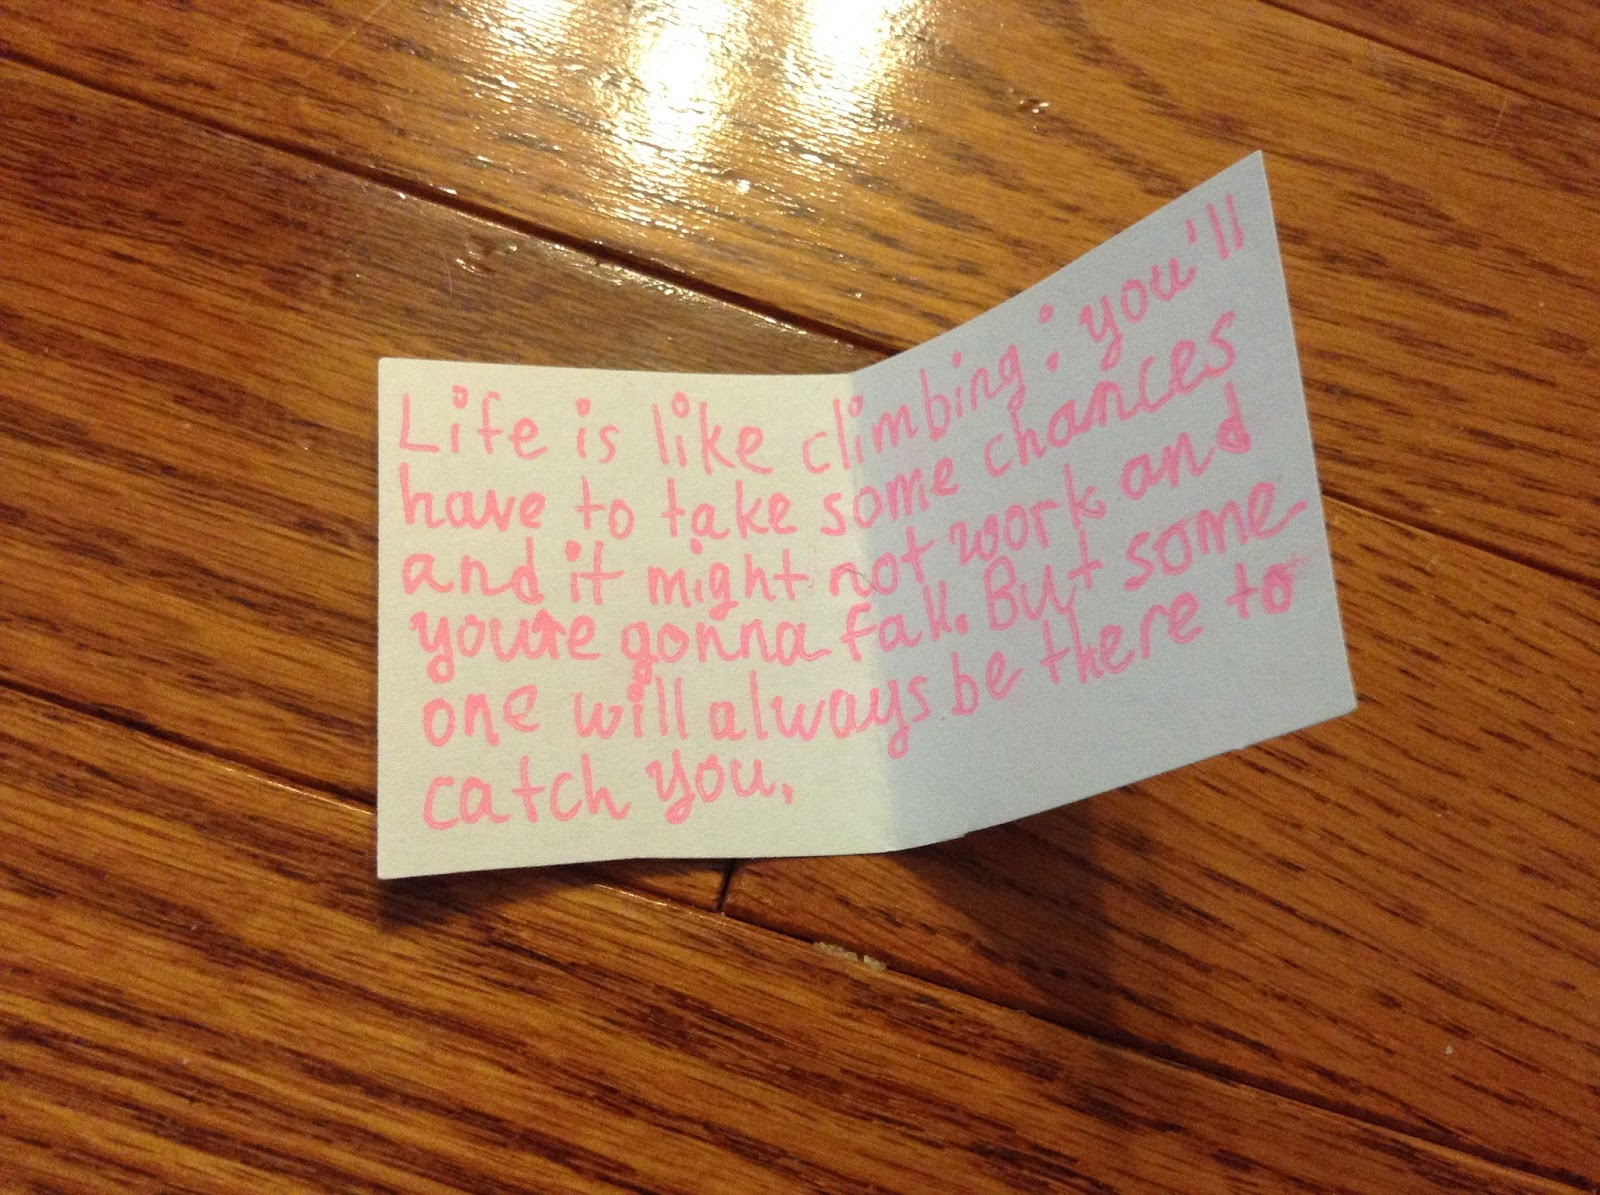 Life is like climbing: you'll
have to take some chances
and it might not work and
you're gonna fall. But some
one will always be there to
catch you.